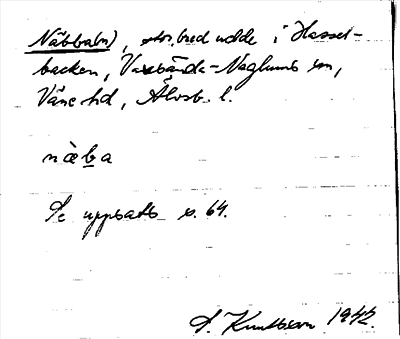 Näbba(n), stor, bred udde i Hassel-
backen, Vassända-Naglums sn,
Väne hd, Älvsb. l.
näba
Se uppsats s. 64.
S. Knutsson 1942.